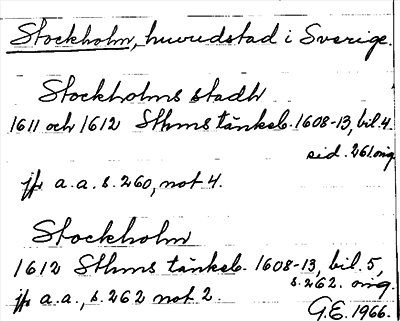 Stockholm, huvudstad i Sverige.
Stockholms stadh
1611 och 1612 Sthms tänkeb. 1608-13, bil. 4.
sid. 261 orig.
jfr a.a. s. 260, not 4.
Stockholm
1612 Sthms tänkeb. 1608-13, bil. 5,
s. 262. orig.
jfr a.a., s. 262 not 2.
G.E. 1966.